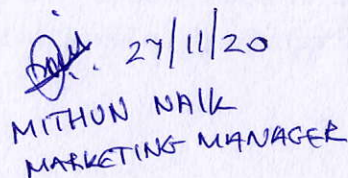 27/11/20
MITHUN NAIK
MARKETING MANAGER